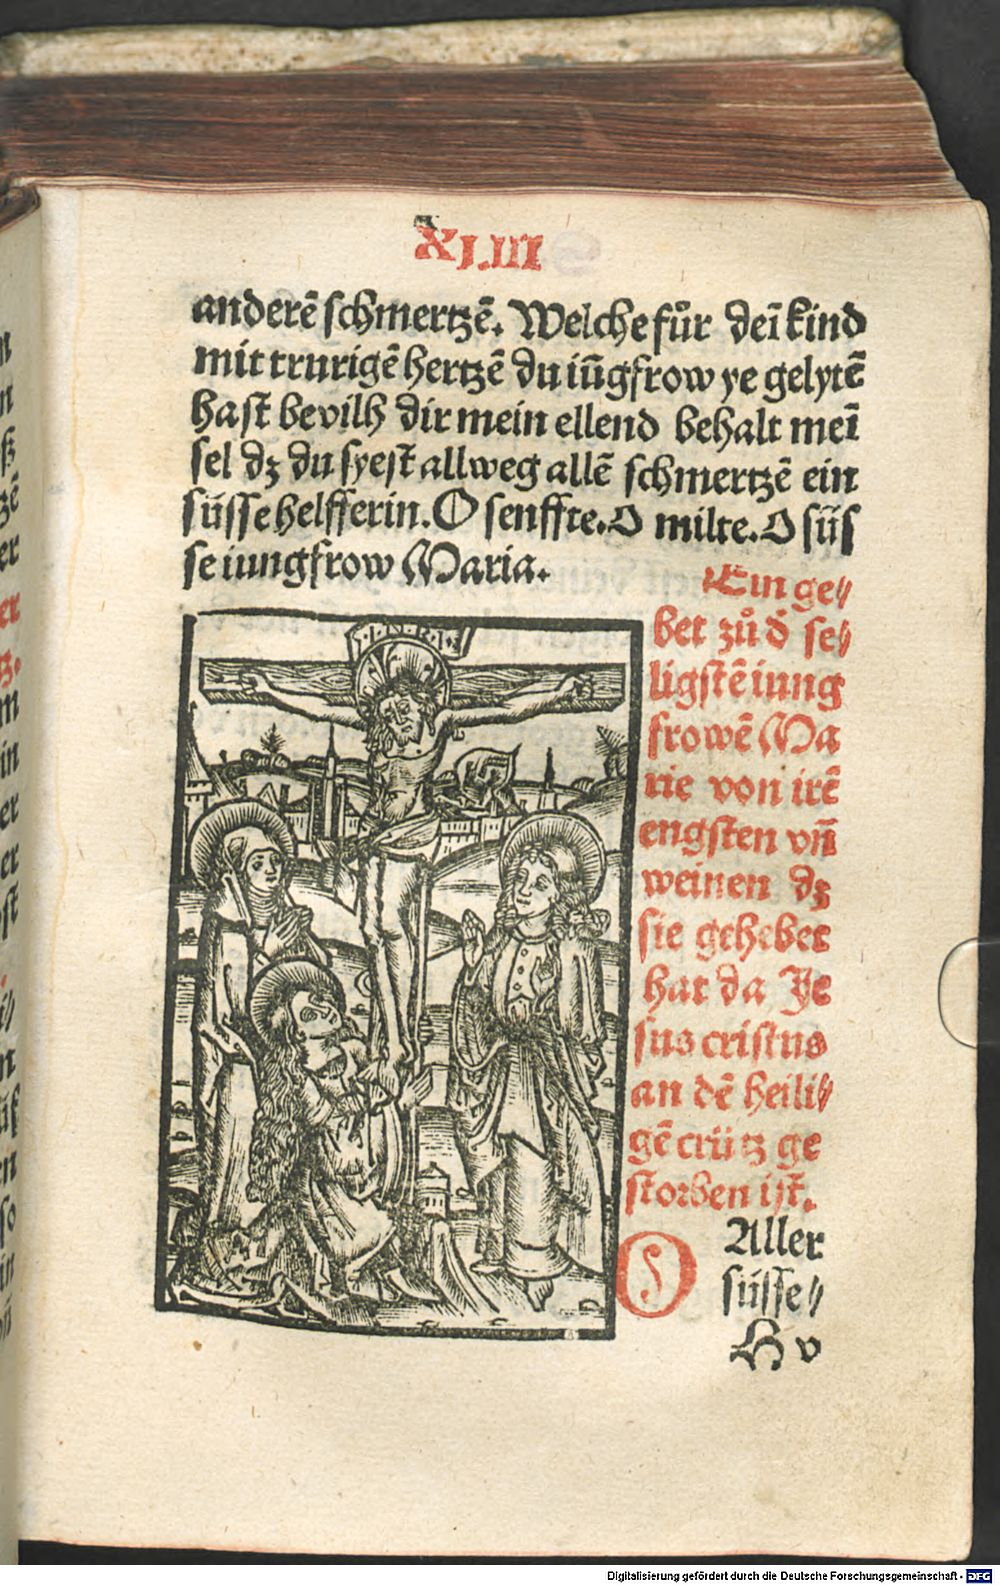 XLIII
anderē schmertzē. Welche fůr deī kind
mit trurigē hertzē du iūgfrow ye gelytē
hast bevilh dir mein ellend behalt meī
sel dz du syest allweg allē schmertzē ein
süsse helfferin. O senffte. O milte. O süs
se iungfrow Maria.
Ein ge⸗
bet zů d̄ se⸗
ligstē iung
frowē Ma
rie von irē
engsten vn̄
weinen dz
sie gehebet
hat da Je
sus cristus
an dē heili⸗
gē crütz ge
storben ist.
I.N.R.I.
O Aller
süsse⸗
H v
Digitalisierung gefördert durch die Deutsche Forschungsgemeinschaft - DFG